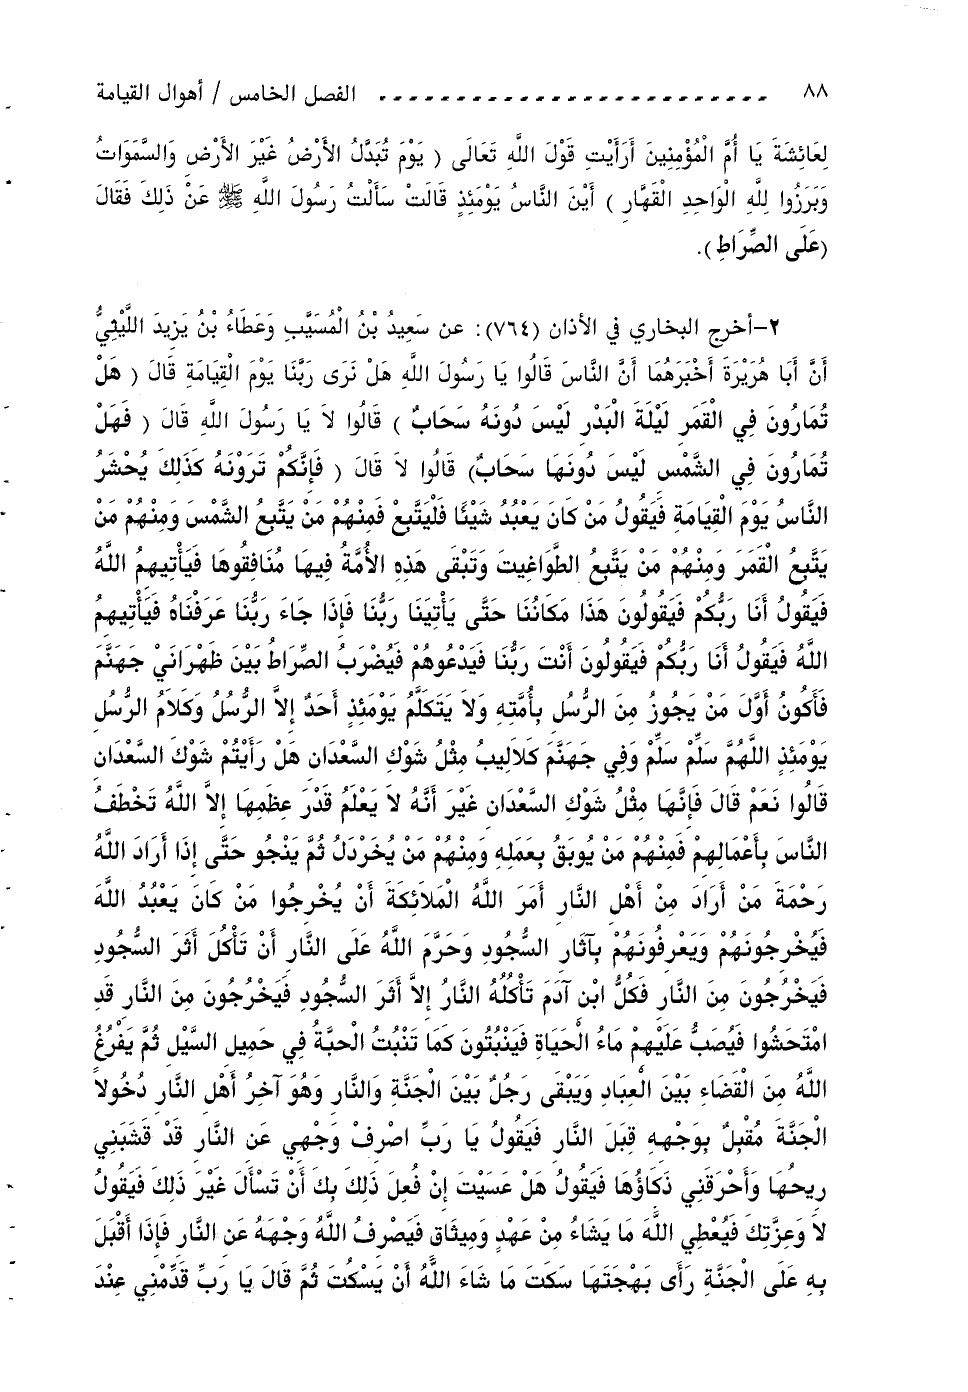 ٨٨ ـ ـ ـ ـ ـ ـ ـ ـ ـ ـ ـ ـ ـ ـ ـ ـ ـ ـ ـ ـ ـ ـ ـ ـ الفصل الخامس / أهوال القيامة
لِعَائِشَةَ يَا أُمَّ الْمُؤْمِنِينَ أَرَأَيْتِ قَوْلَ اللَّهِ تَعَالَى ( يَوْمَ تُبَدَّلُ الأَرْضُ غَيْرَ الأَرْضِ وَالسَّمَوَاتُ
وَبَرَزُوا لِلَّهِ الْوَاحِدِ الْقَهَّارِ ) أَيْنَ النَّاسُ يَوْمَئِذٍ قَالَتْ سَأَلْتُ رَسُولَ اللَّهِ ﷺ عَنْ ذَلِكَ فَقَالَ
(عَلَى الصِّرَاطِ).
٢-أخرج البخاري في الأذان (٧٦٤): عن سَعِيدُ بْنُ الْمُسَيَّبِ وَعَطَاءُ بْنُ يَزِيدَ اللَّيْثِيُّ
أَنَّ أَبَا هُرَيْرَةَ أَخْبَرَهُمَا أَنَّ النَّاسَ قَالُوا يَا رَسُولَ اللَّهِ هَلْ نَرَى رَبَّنَا يَوْمَ الْقِيَامَةِ قَالَ ( هَلْ
تُمَارُونَ فِي الْقَمَرِ لَيْلَةَ الْبَدْرِ لَيْسَ دُونَهُ سَحَابٌ ) قَالُوا لاَ يَا رَسُولَ اللَّهِ قَالَ ( فَهَلْ
تُمَارُونَ فِي الشَّمْسِ لَيْسَ دُونَهَا سَحَابٌ) قَالُوا لاَ قَالَ ( فَإِنَّكُمْ تَرَوْنَهُ كَذَلِكَ يُحْشَرُ
النَّاسُ يَوْمَ الْقِيَامَةِ فَيَقُولُ مَنْ كَانَ يَعْبُدُ شَيْئًا فَلْيَتَّبِعْ فَمِنْهُمْ مَنْ يَتَّبِعُ الشَّمْسَ وَمِنْهُمْ مَنْ
يَتَّبِعُ الْقَمَرَ وَمِنْهُمْ مَنْ يَتَّبِعُ الطَّوَاغِيتَ وَتَبْقَى هَذِهِ الأُمَّةُ فِيهَا مُنَافِقُوهَا فَيَأْتِيهِمُ اللَّهُ
فَيَقُولُ أَنَا رَبُّكُمْ فَيَقُولُونَ هَذَا مَكَانُنَا حَتَّى يَأْتِيَنَا رَبُّنَا فَإِذَا جَاءَ رَبُّنَا عَرَفْنَاهُ فَيَأْتِيهِمُ
اللَّهُ فَيَقُولُ أَنَا رَبُّكُمْ فَيَقُولُونَ أَنْتَ رَبُّنَا فَيَدْعُوهُمْ فَيُضْرَبُ الصِّرَاطُ بَيْنَ ظَهْرَانَيْ جَهَنَّمَ
فَأَكُونُ أَوَّلَ مَنْ يَجُوزُ مِنَ الرُّسُلِ بِأُمَّتِهِ وَلاَ يَتَكَلَّمُ يَوْمَئِذٍ أَحَدٌ إِلاَّ الرُّسُلُ وَكَلاَمُ الرُّسُلِ
يَوْمَئِذٍ اللَّهُمَّ سَلِّمْ سَلِّمْ وَفِي جَهَنَّمَ كَلاَلِيبُ مِثْلُ شَوْكِ السَّعْدَانِ هَلْ رَأَيْتُمْ شَوْكَ السَّعْدَانِ
قَالُوا نَعَمْ قَالَ فَإِنَّهَا مِثْلُ شَوْكِ السَّعْدَانِ غَيْرَ أَنَّهُ لاَ يَعْلَمُ قَدْرَ عِظَمِهَا إِلاَّ اللَّهُ تَخْطَفُ
النَّاسَ بِأَعْمَالِهِمْ فَمِنْهُمْ مَنْ يُوبَقُ بِعَمَلِهِ وَمِنْهُمْ مَنْ يُخَرْدَلُ ثُمَّ يَنْجُو حَتَّى إِذَا أَرَادَ اللَّهُ
رَحْمَةَ مَنْ أَرَادَ مِنْ أَهْلِ النَّارِ أَمَرَ اللَّهُ الْمَلاَئِكَةَ أَنْ يُخْرِجُوا مَنْ كَانَ يَعْبُدُ اللَّهَ
فَيُخْرِجُونَهُمْ وَيَعْرِفُونَهُمْ بِآثَارِ السُّجُودِ وَحَرَّمَ اللَّهُ عَلَى النَّارِ أَنْ تَأْكُلَ أَثَرَ السُّجُودِ
فَيَخْرُجُونَ مِنَ النَّارِ فَكُلُّ ابْنِ آدَمَ تَأْكُلُهُ النَّارُ إِلاَّ أَثَرَ السُّجُودِ فَيَخْرُجُونَ مِنَ النَّارِ قَدِ
امْتَحَشُوا فَيُصَبُّ عَلَيْهِمْ مَاءُ الْحَيَاةِ فَيَنْبُتُونَ كَمَا تَنْبُتُ الْحِبَّةُ فِي حَمِيلِ السَّيْلِ ثُمَّ يَفْرُغُ
اللَّهُ مِنَ الْقَضَاءِ بَيْنَ الْعِبَادِ وَيَبْقَى رَجُلٌ بَيْنَ الْجَنَّةِ وَالنَّارِ وَهُوَ آخِرُ أَهْلِ النَّارِ دُخُولاً
الْجَنَّةَ مُقْبِلٌ بِوَجْهِهِ قِبَلَ النَّارِ فَيَقُولُ يَا رَبِّ اصْرِفْ وَجْهِي عَنِ النَّارِ قَدْ قَشَبَنِي
رِيحُهَا وَأَحْرَقَنِي ذَكَاؤُهَا فَيَقُولُ هَلْ عَسَيْتَ إِنْ فُعِلَ ذَلِكَ بِكَ أَنْ تَسْأَلَ غَيْرَ ذَلِكَ فَيَقُولُ
لاَ وَعِزَّتِكَ فَيُعْطِي اللَّهَ مَا يَشَاءُ مِنْ عَهْدٍ وَمِيثَاقٍ فَيَصْرِفُ اللَّهُ وَجْهَهُ عَنِ النَّارِ فَإِذَا أَقْبَلَ
بِهِ عَلَى الْجَنَّةِ رَأَى بَهْجَتَهَا سَكَتَ مَا شَاءَ اللَّهُ أَنْ يَسْكُتَ ثُمَّ قَالَ يَا رَبِّ قَدِّمْنِي عِنْدَ